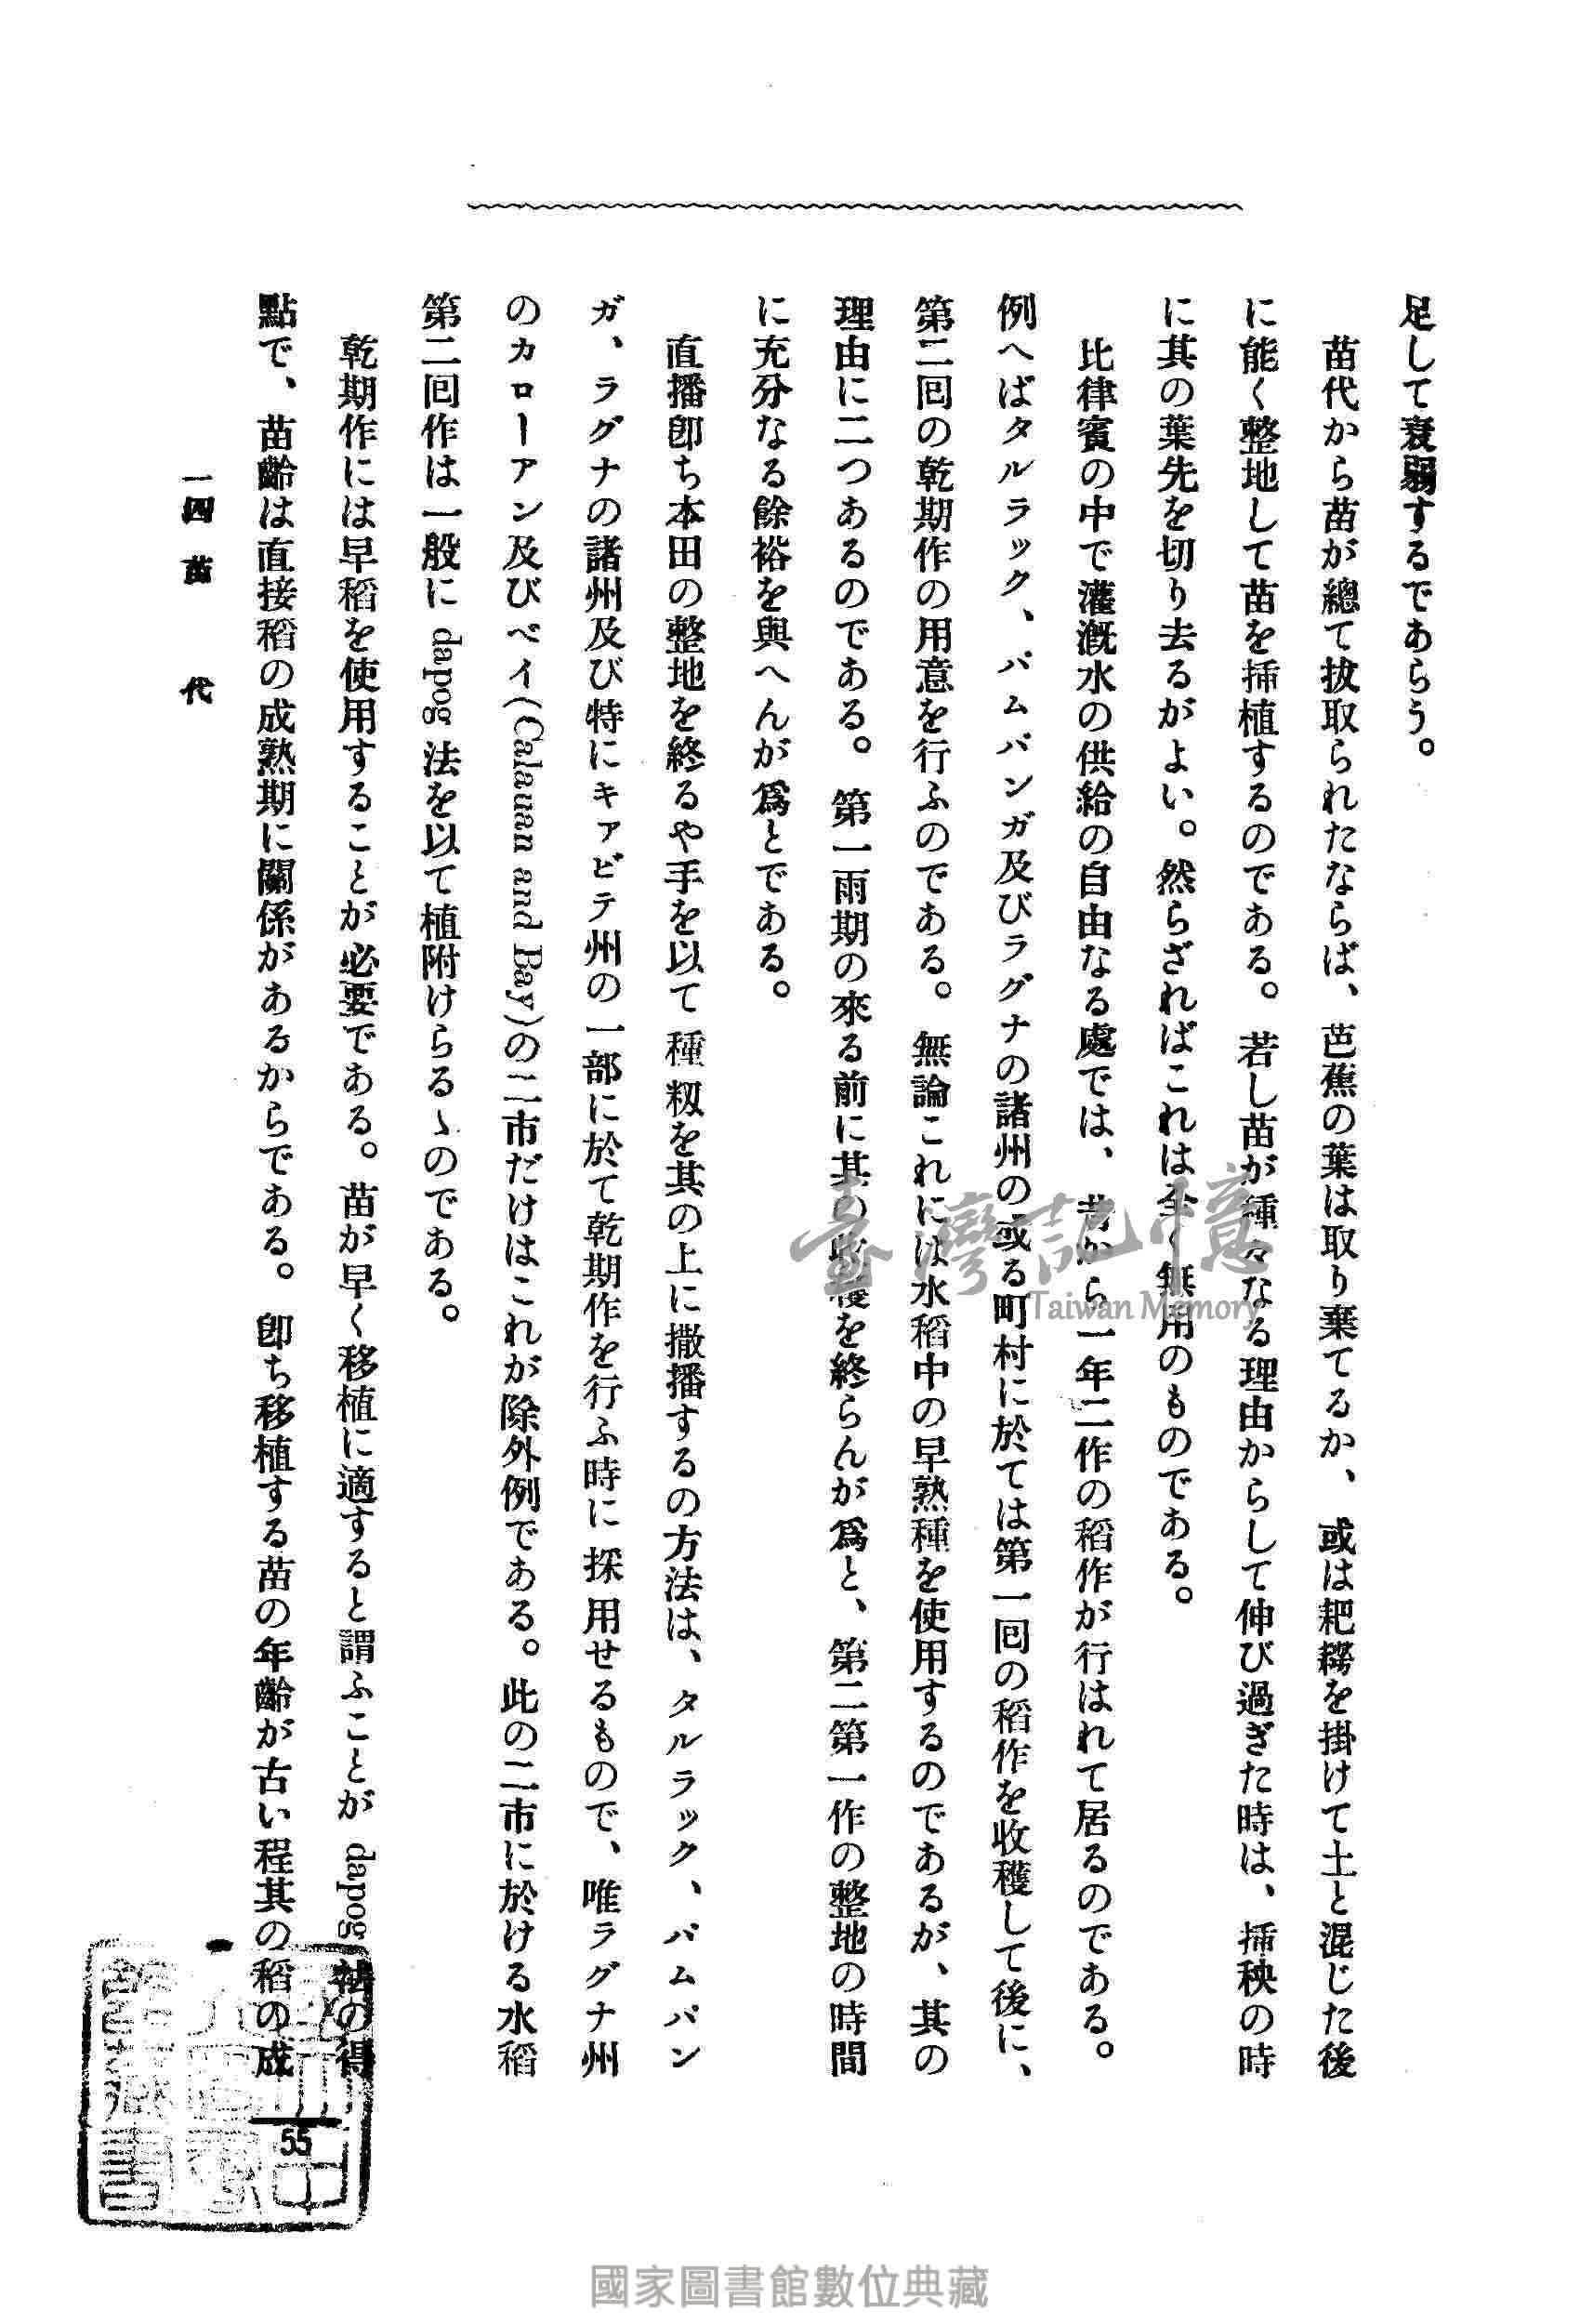 足して衰弱するであらう。
苗代から苗が總て拔取られたならば、芭蕉の葉は取り棄てるか、或は耙耮を掛けて土と混じた後
に能く整地して苗を揷植するのである。若し苗が種々なる理由からして伸び過ぎた時は、揷秧の時
に其の葉先を切り去るがよい。然らざればこれは全く無用のものである。
比律賓の中で灌漑水の供給の自由なる處では、昔から一年二作の稻作が行はれて居るのである。
例へばタルラック、パムバンガ及びラグナの諸州の或る町村に於ては第一回の稻作を收穫して後に、
第二回の乾期作の用意を行ふのである。無論これには水稻中の早熟種を使用するのであるが、其の
理由に二つあるのである。第一雨期の來る前に其の收穫を終らんが爲と、第二第一作の整地の時間
に充分なる餘裕を與へんが爲とである。
直播卽ち本田の整地を終るや手を以て種籾を其の上に撒播するの方法は、タルラック、パムパン
ガ、ラグナの諸州及び特にキァビテ州の一部に於て乾期作を行ふ時に採用せるもので、唯ラグナ州
のカローアン及びベイ(Calauan and Bay)の二市だけはこれが除外例である。此の二市に於ける水稻
第二回作は一般に dapog 法を以て植附けらるゝのである。
乾期作には早稻を使用することが必要である。苗が早く移植に適すると謂ふことが dapog 法の得
點で、苗齡は直接稻の成熟期に關係があるからである。卽ち移植する苗の年齡が古い程其の稻の成
一四 苗代
55
臺灣記憶
Taiwan Memory
國家圖書館數位典藏